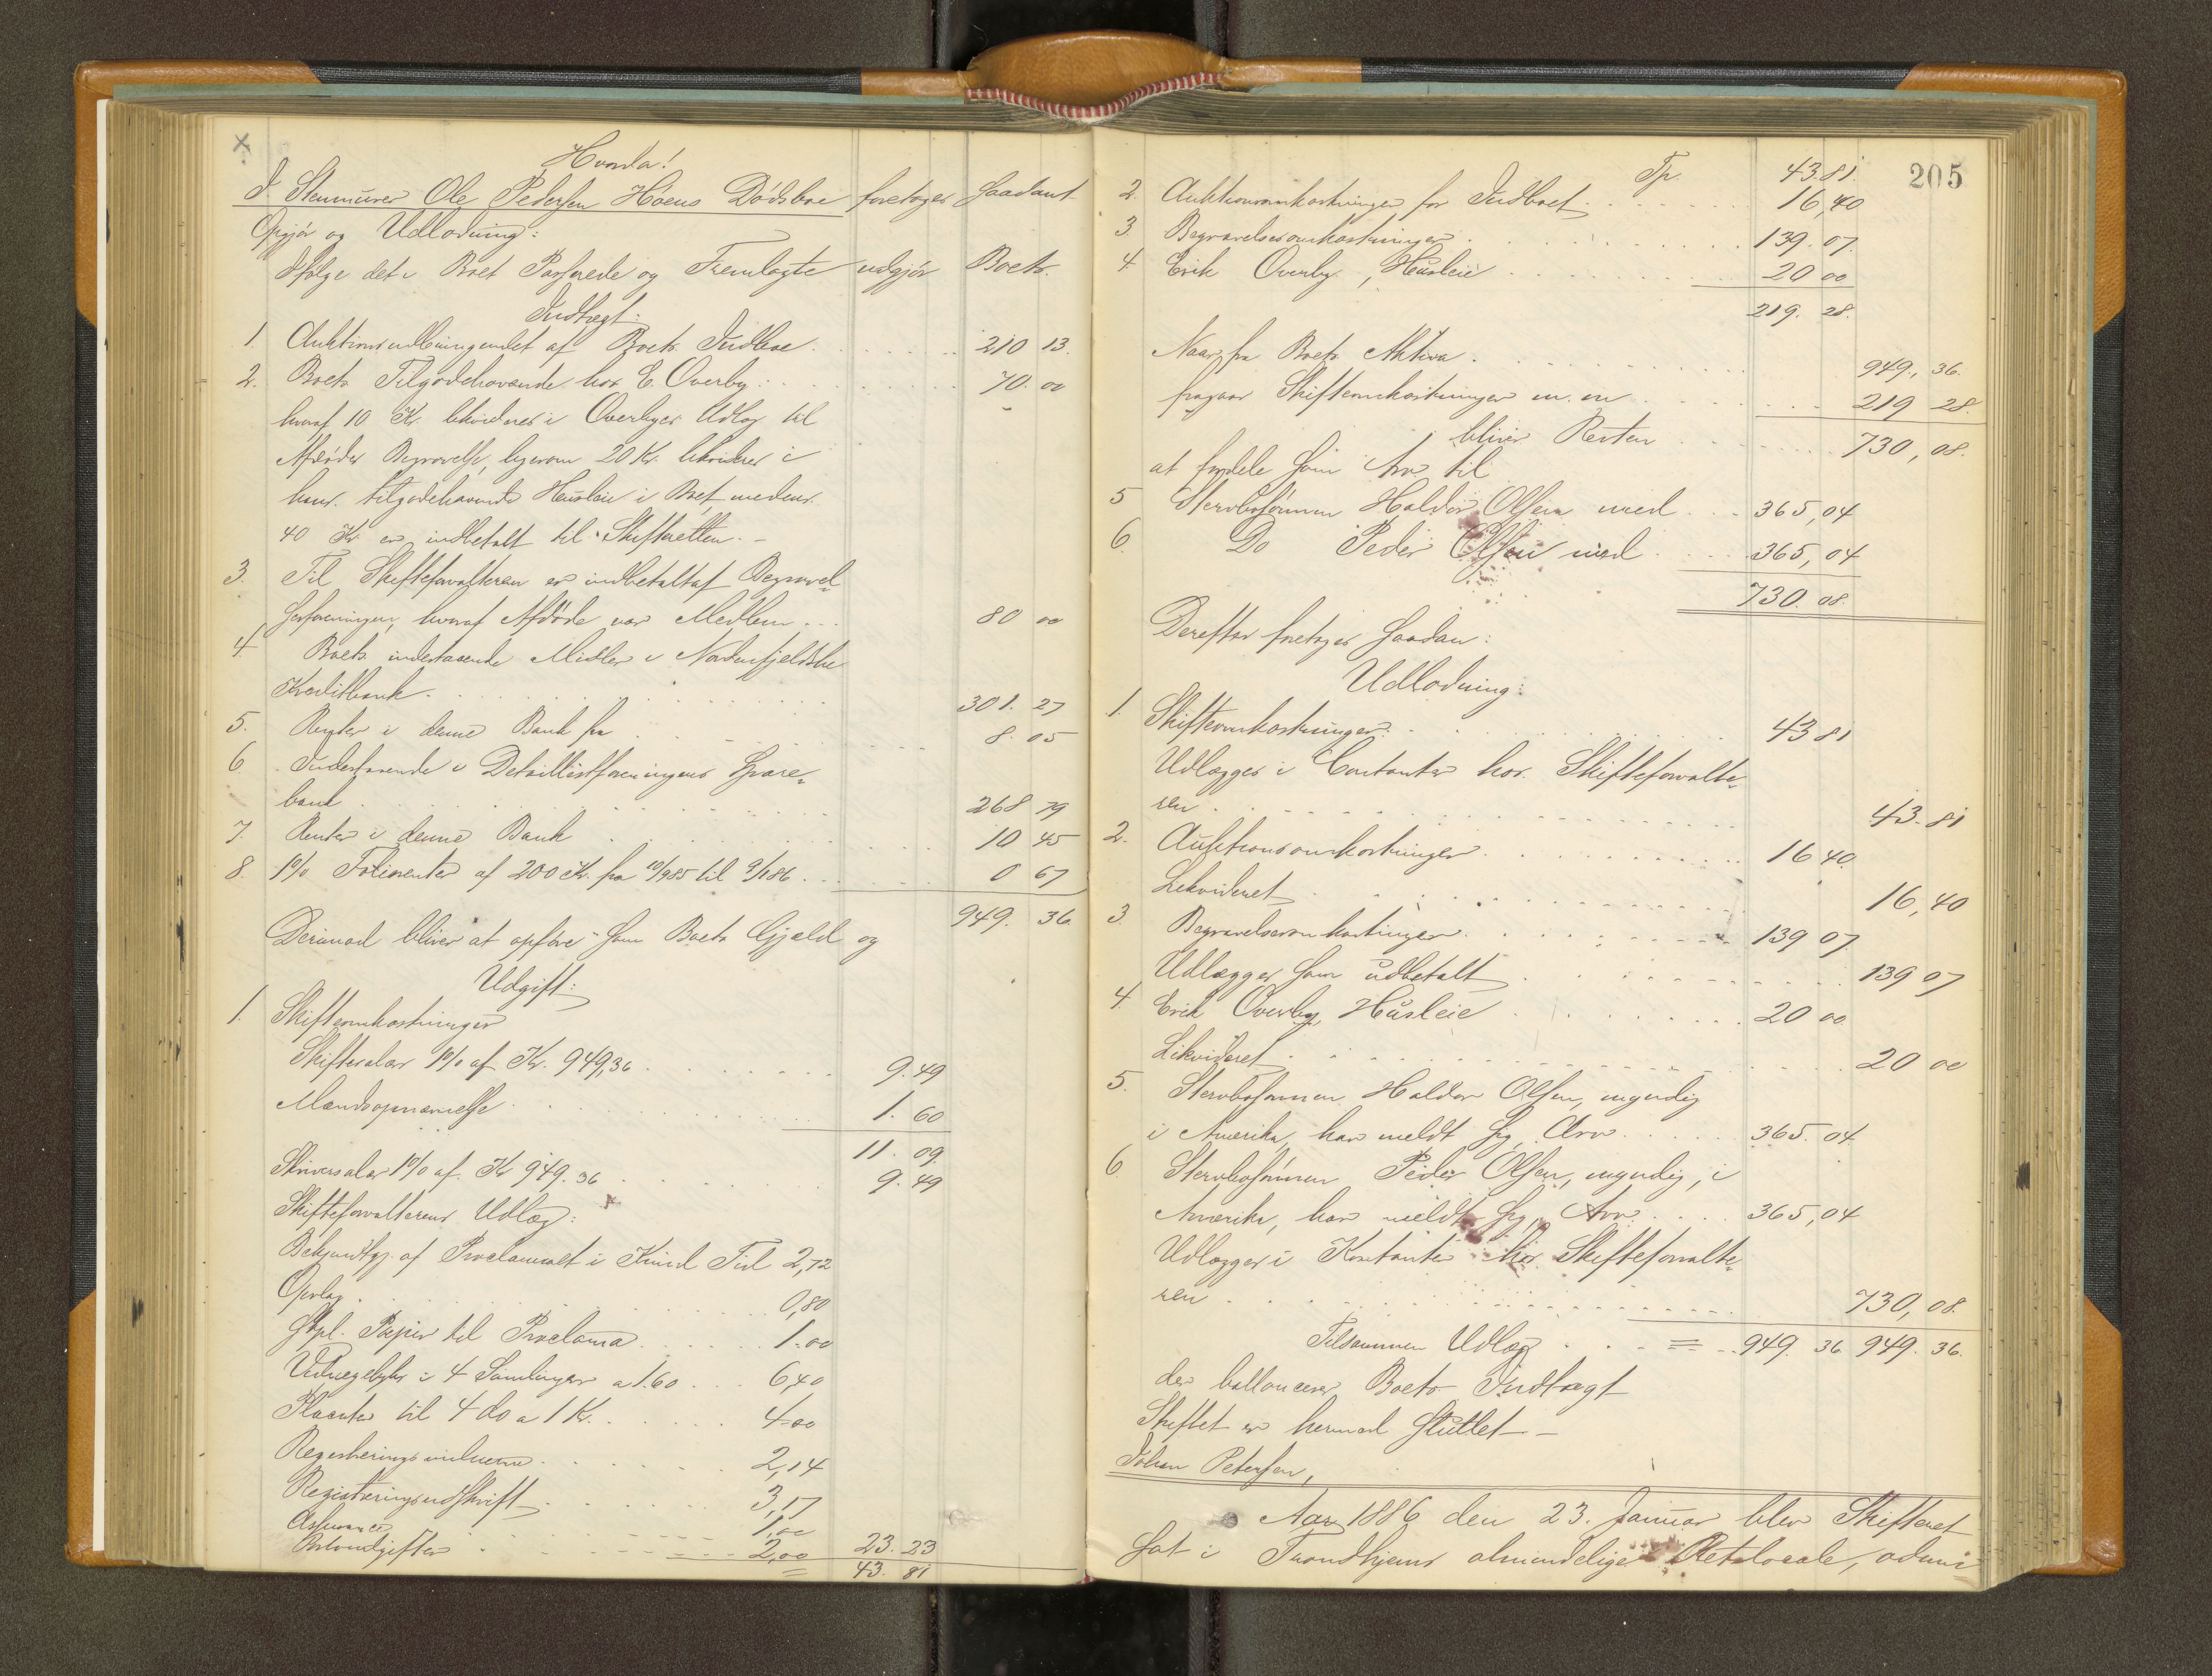 Hvorda!
I Stenmurer Ole Pedersen Höens Dödsboe foretoges saadant
Opgjör og Udlodning:
Ifölge det i Boet Passerede og Fremlagte udgjör Boets
Indtægt:
1. Auktionsudbringendet af Boets Indboe . . . 210 13.
2. Boets Tilgodehavende hos E. Overby: . . . 70. 00
hvoraf 10 Kr. likvideres i Overbyes Udlæg til
Afdödes Begravelse, ligesom 20 Kr. likviderer i
hans tilgodehavende Husleie i Boet, medens
40 Kr er indbetalt til Skifteretten. –
3. Til Skifteforvalteren er indbetalt af Begravel-
sesforeningen, hvoraf Afdöde var Medlem . . . 80 00
4. Boets indestaaende Midler i Nordenfjeldske
Kreditbank . . . 301. 27
5. Renter i denne Bank fra . . . 8. 05
6. Indestaaende i Detaillistforeningens Spare-
bank . . . 268 79
7. Renter i denne Bank . . . 10 45
8. 1% Foliorenter af 200 Kr. fra 10/9 85 til 9/1 86 . . . 0 67
949. 36.
Derimod bliver at opföre som Boets Gjæld og
Udgift:
1. Skifteomkostninger
Skiftesalær 1% af Kr. 949,36 . . . 9. 49
Mandsopnævnelse . . . 1. 60
11. 09
Skriversalær 1% af Kr 949. 36 . . . 9. 49
Skifteforvalterens Udlæg:
Bekjendtgj. af Proclamaet i Kund Tid 2,72
Opslag . . . 0,80
Stpl. Papir til Proclama . . . 1. 00
Vidnegebyhr i 4 Samlinger a 1.60 . . . 6,40
til 4 do a 1 Kr. . . . 4. 00
Registrerings . . . 2,14
Registreringsudskrift . . . 3,17
Assurance . . . 1,00
Portoudgifter . . . 2,00 23. 23
43. 81
205
Tp. 43. 81.
2. Auktionsomkostninger for Indboet . . . 16,40
3. Begravelsesomkostninger . . . 139. 07.
4. Erik Overby, Husleie . . . 20 00
219. 28.
Naar fra Boets Aktiva . . . 949., 36.
fragaar Skifteomkostninger m. m . . . 219 28.
bliver Resten . . . 730, 08.
at fordele som Arv til
5 Stervbosönnen Haldor Olsen med . . . 365,04
6. Do Peder Olsen med . . . 365,04
730. 08.
Derefter foretoges saadan:
Udlodning:
1. Skifteomkostninger: . . . 43 81
Udlægges i Contanter hos Skifteforvalte-
ren . . . 43. 81
2. Auktionsomkostninger . . . 16 40.
Likvideret . . . 16,40
3. Begravelsesomkostninger . . . 139 07.
Udlægges som udbetalt . . . 139 07
4 Erik Overby, Husleie . . . 20 00
Likvideret . . . 20 00
5. Stervbosönnen Haldor Olsen, myndig
i Amerika, har meldt sig, Arv . . . 365. 04
6. Stervbosönnen Peder Olsen, myndig, i
Amerika, har meldt sig, Arv . . . 365,04
Udlægges i Kontanter hos Skifteforvalte-
ren . . . 730, 08.
Tilsammen Udlæg . . . = 949. 36 949. 36.
der ballancerer Boets Indtægt
Skiftet er hermed sluttet –
Johan Petersen,
Aar 1886 den 23. Januar blev Skifteret
sat i Trondhjems almindelige Retslocale, admi-